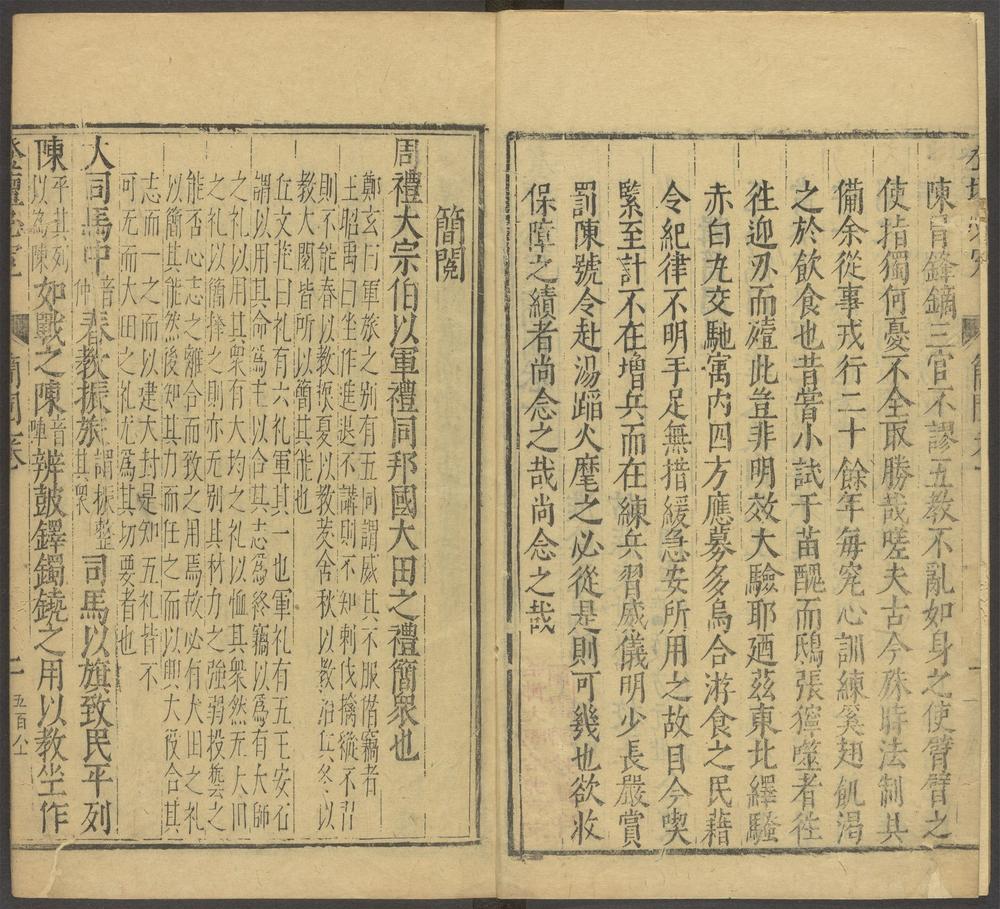 陳冒鋒鏑三官不謬五教不亂如身之使臂臂之
使指獨何憂不全取勝哉嗟夫古今殊時法制其
備余從事戎行二十餘年每究心訓練奚翅飢渴
之於飲食也昔嘗小試于苗醜而鴟張獰噬者徃
徃迎刃而殪此豈非明效大驗耶廼茲東北繹騷
赤白九交馳寓內四方應募多烏合游食之民藉
令紀律不明手足無措緩急安所用之故目今喫
緊至計不在增兵而在練兵習威儀明少長嚴賞
罰陳號令赴湯蹈火麾之必從是則可幾也欲收
保障之績者尚念之哉尚念之哉
簡閱
周禮大宗伯以軍禮同邦國大田之禮簡衆也
鄭玄曰軍旅之别有五同謂威其不服僭竊者
王昭禹曰坐作進退不講則不知刺伐擒縱不習
則不能春以教振夏以教茇舍秋以教治兵冬以
教大閱皆所以簡其能也
丘文莊曰礼有六礼軍其一也軍礼有五王安石
謂以用其命爲主以合其志爲終竊以爲有大師
之礼以用其衆有大均之礼以恤其衆然无大田
之礼以簡擇之則亦无别其材力之強弱投藝之
能否心志之離合而致之用焉故必有大田之礼
以簡其能然後知其力而任之而以興大役合其
志而一之而以建大封是知五礼皆不
可无而大田之礼尤爲其切要者也
大司馬中音仲春教振旅謂振整其衆司馬以旗致民平列
陳平其列以為陳如戰之陳音陣辨鼓鐸鐲鐃之用以教坐作
簡閱卷
五百公二